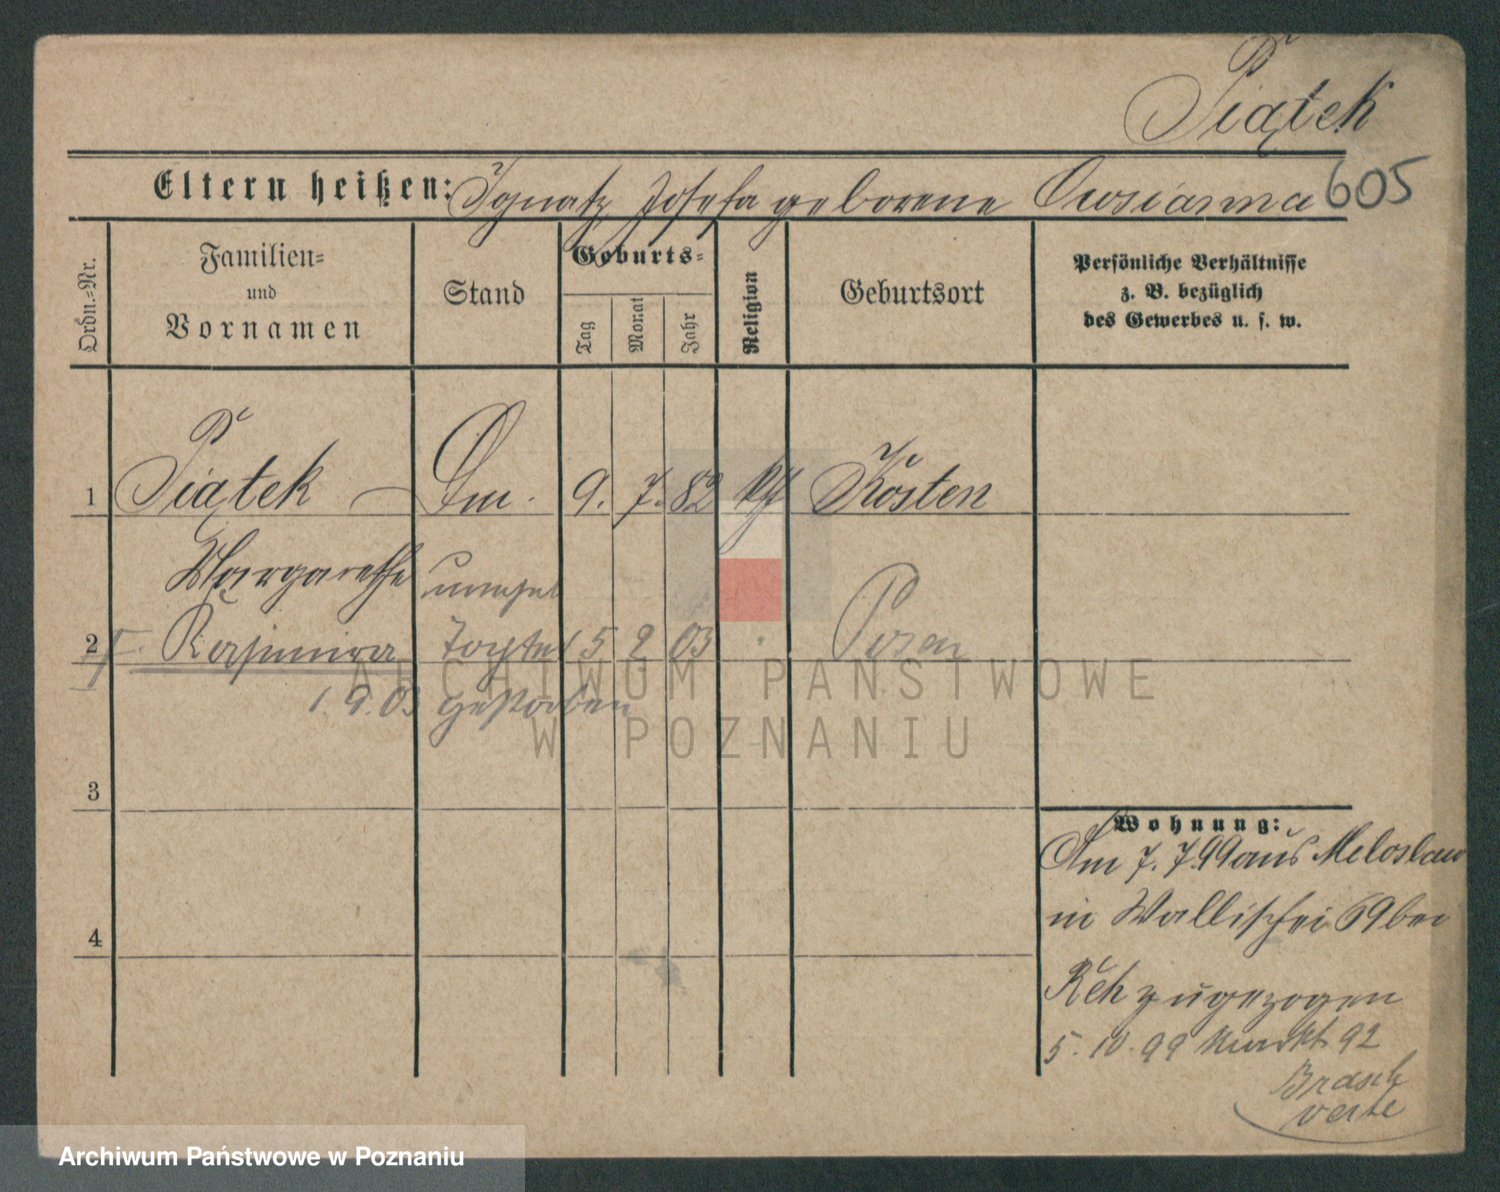 Piątek
Eltern heißen: Ignatz Josefa geborene
605
Ordn.=Nr.
Familien=
und
Vornamen
Stand
Geburts=
Tag
Monat
Jahr
Religion
Geburtsort
Persönliche Verhältnisse
z. B. bezüglich
des Gewerbes u. s. w.
1 Piątek 9. 7. 82 Kosten
Margarethe unehel
2 Kasimira Tochter 15 9 03 Posen
1.9.03 gestorben
3
4
Wohnung:
7. 7. 99 aus Miloslaw
in Wallischei 69 bei
Reh zugezogen
5. 10. 99 Markt 92
verte
ARCHIWUM PAŃSTWOWE
W POZNANIU
Archiwum Państwowe w Poznaniu